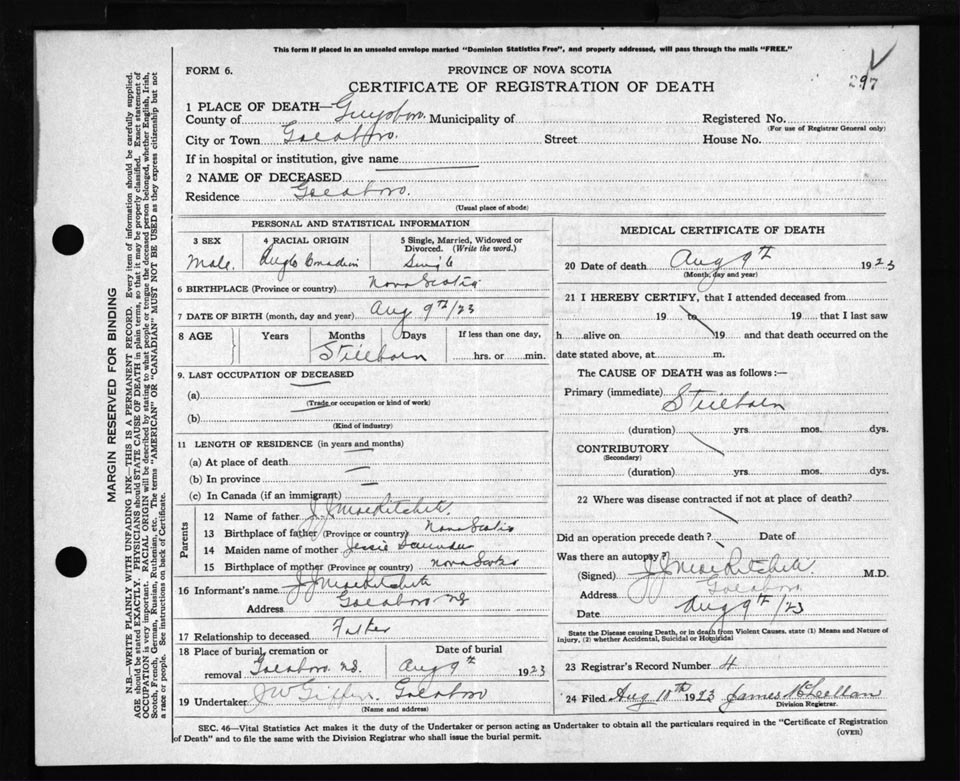 This form if placed in an unsealed envelope marked "Dominion Statistics Free", and properly addressed, will pass through the mails "FREE."
FORM 6.
PROVINCE OF NOVA SCOTIA
297
CERTIFICATE OF REGISTRATION OF DEATH
1 PLACE OF DEATH—
County of Guysboro. Municipality of
Registered No.
(For use of Registrar General only)
City or Town Goldboro. Street House No.
If in hospital or institution, give name
2 NAME OF DECEASED
Residence Goldboro.
(Usual place of abode)
PERSONAL AND STATISTICAL INFORMATION
3 SEX
Male.
4 RACIAL ORIGIN
Anglo Canadian
5 Single, Married, Widowed or Divorced. (Write the word.)
Single
6 BIRTHPLACE (Province or country) Nova Scotia
7 DATE OF BIRTH (month, day and year) Aug 9th/23
8 AGE Years Months Days If less than one day,
Stillborn hrs. or min.
9. LAST OCCUPATION OF DECEASED
(a)
(Trade or occupation or kind of work)
(b)
(Kind of industry)
11 LENGTH OF RESIDENCE (in years and months)
(a) At place of death
(b) In province
(c) In Canada (if an immigrant)
Parents
12 Name of father J J MacRitchie.
13 Birthplace of father (Province or country) Nova Scotia
14 Maiden name of mother Jessie
15 Birthplace of mother (Province or country) Nova Scotia
16 Informant's name J J MacRitchie
Address Goldboro NS
17 Relationship to deceased Father
18 Place of burial, cremation or removal Goldboro N.S.
Date of burial
Aug 9th 1923
19 Undertaker J W Giffin Goldboro
(Name and address)
MEDICAL CERTIFICATE OF DEATH
20 Date of death Aug 9th 1923
(Month, day and year)
21 I HEREBY CERTIFY, that I attended deceased from
19 to 19 that I last saw
h alive on 19 and that death occurred on the
date stated above, at m.
The CAUSE OF DEATH was as follows:—
Primary (immediate) Stillborn
(duration) yrs. mos. dys.
CONTRIBUTORY
(Secondary)
(duration) yrs. mos. dys.
22 Where was disease contracted if not at place of death?
Did an operation precede death? Date of
Was there an autopsy?
(Signed) J J MacRitchie M.D.
Address Goldboro
Date Aug 9th/23
State the Disease causing Death, or in death from Violent Causes, state (1) Means and Nature of
Injury, (2) whether Accidental, Suicidal or Homicidal
23 Registrar's Record Number 4
24 Filed Aug 10th 1923 James McLellan
Division Registrar.
SEC. 46—Vital Statistics Act makes it the duty of the Undertaker or person acting as Undertaker to obtain all the particulars required in the "Certificate of Registration
of Death" and to file the same with the Division Registrar who shall issue the burial permit.
(OVER)
MARGIN RESERVED FOR BINDING
N.B.—WRITE PLAINLY WITH UNFADING INK—THIS IS A PERMANENT RECORD. Every item of information should be carefully supplied.
AGE should be stated EXACTLY. PHYSICIANS should STATE CAUSE OF DEATH in plain terms, so that it may be properly classified. Exact statement of
OCCUPATION is very important. RACIAL ORIGIN will be described by stating to what people or tongue the deceased person belonged, whether English, Irish,
Scotch, French, German, Russian, Ruthenian, etc. The terms "AMERICAN" OR "CANADIAN" MUST NOT BE USED as they express citizenship but not
a race or people. See instructions on back of Certificate.